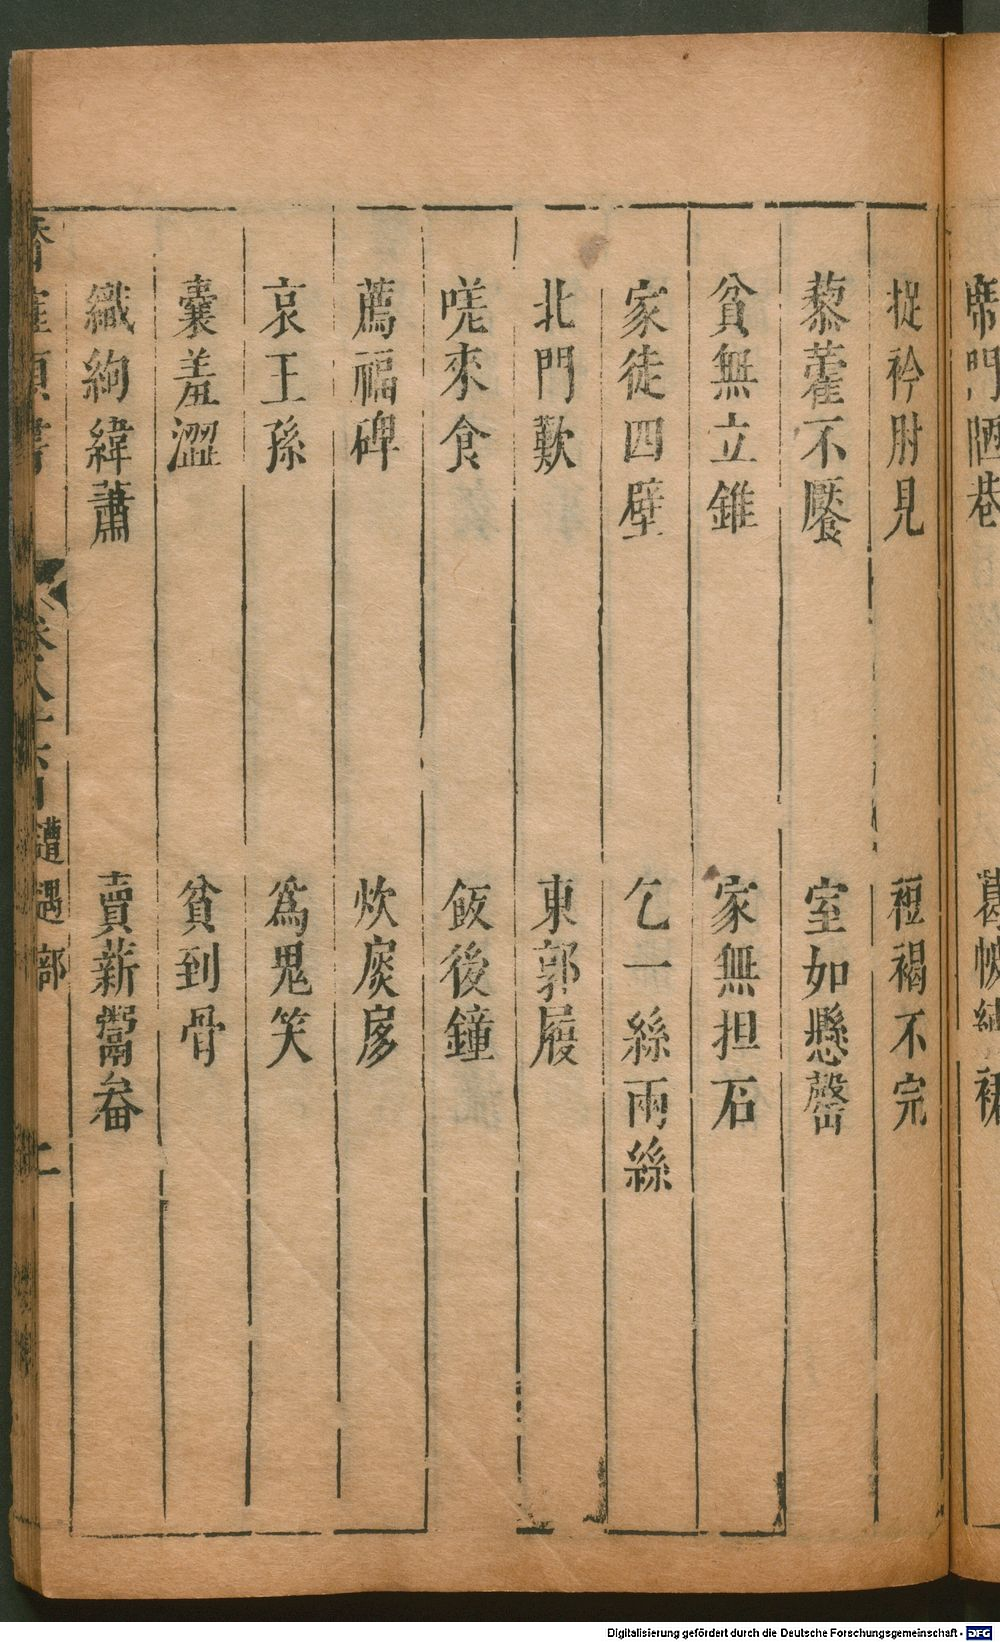 席門陋巷　葛帔練裙
捉衿肘見　裋褐不完
藜藿不饜　室如懸罄
貧無立錐　家無担石
家徒四壁　乞一絲兩絲
北門歎　東郭履
嗟來食　飯後鐘
薦福碑　炊扊扅
哀王孫　爲鬼笑
囊羞澀　貧到骨
織絇緯蕭　賣薪鬻畚
卷八十六 遭遇部 二
Digitalisierung gefördert durch die Deutsche Forschungsgemeinschaft - DFG